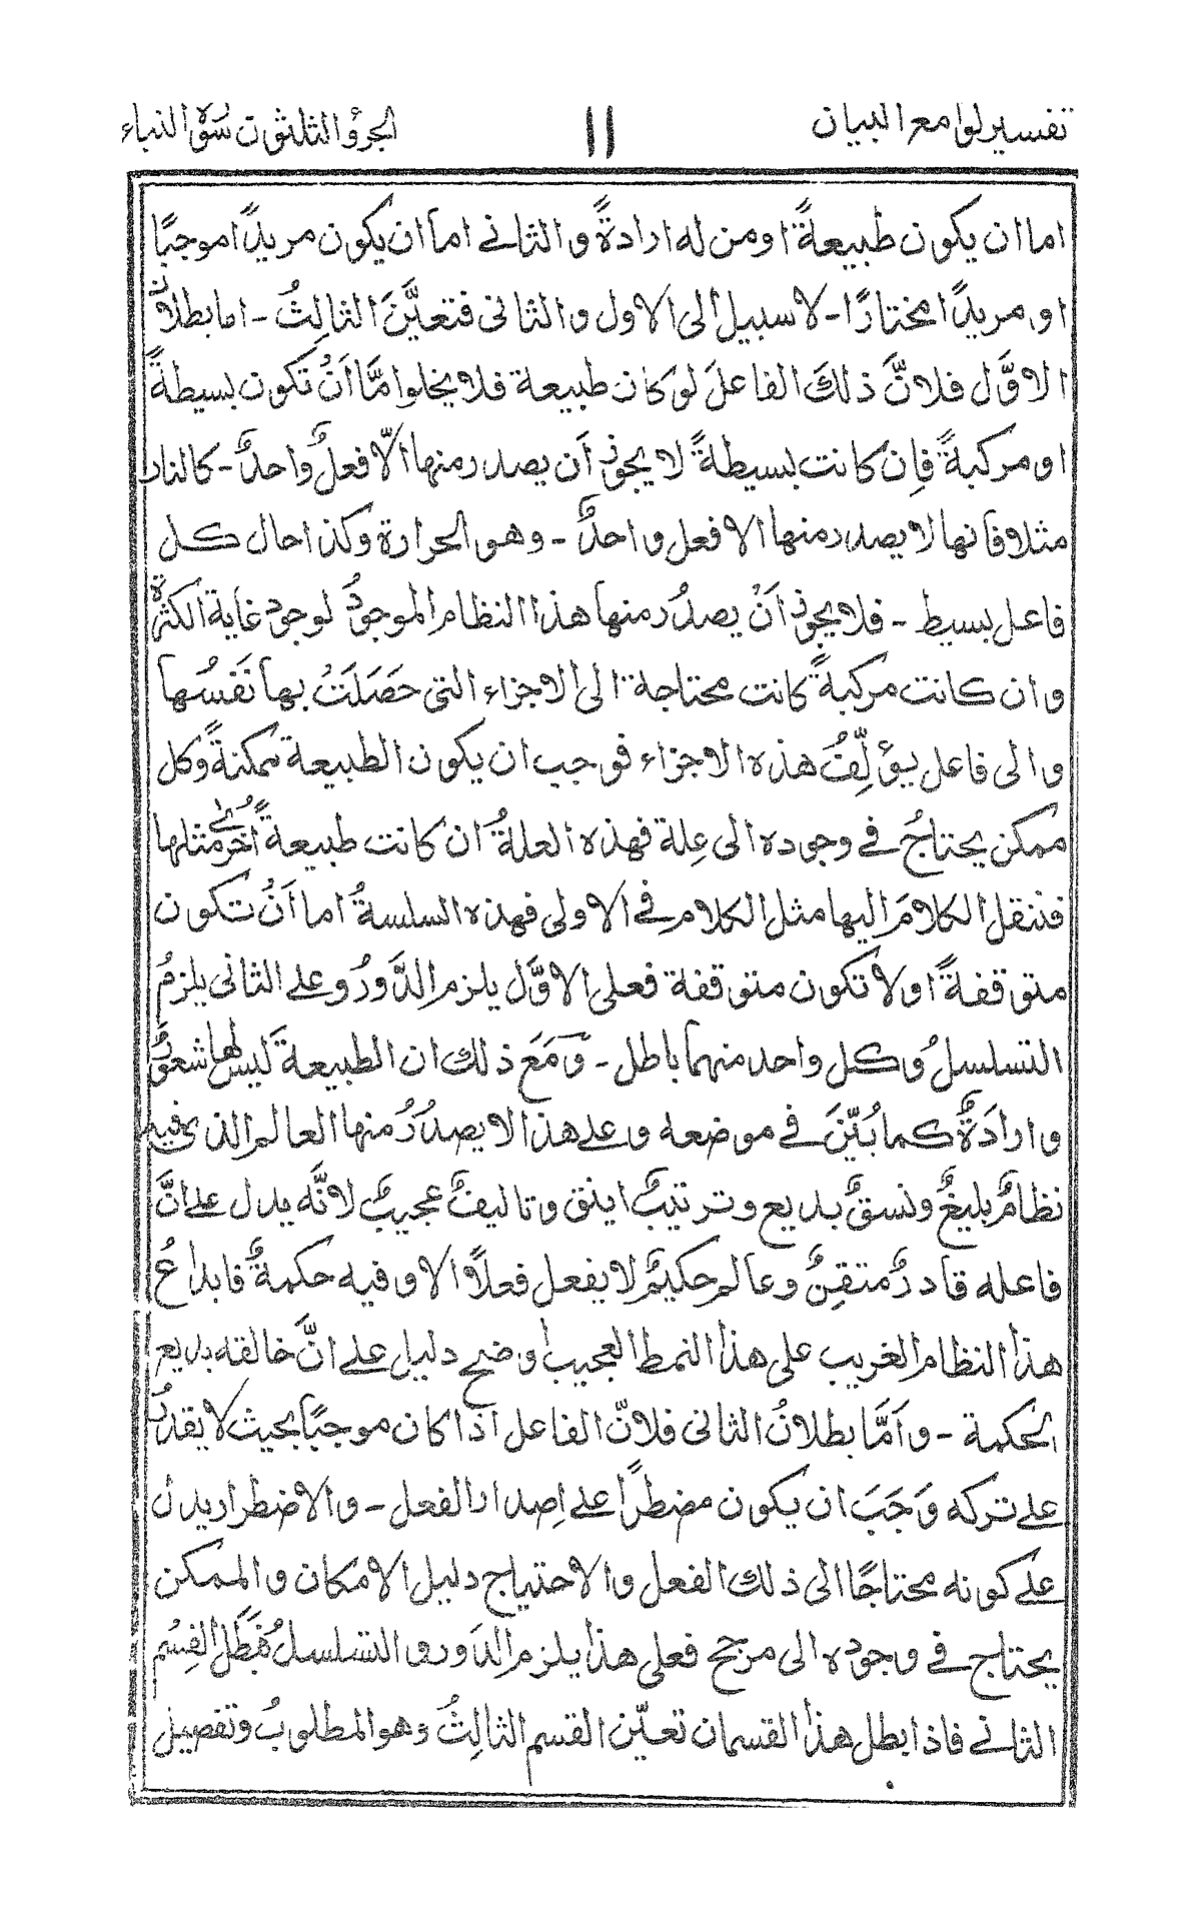 تفسير لوامع البيان ١١ الجزؤ الثلثون سورة النباء
اما ان يكون طبيعةً او من له ارادةً والثاني اما ان يكون مريدًا موجبًا
او مريدًا مختارًا - لا سبيل الى الاول والثانى فتعيَّنَ الثالِثُ - اما بطلان
الاوَّل فلانَّ ذلكَ الفاعلَ لو كان طبيعة فلا يخلوا مَّا اَنْ تكون بسيطةً
او مركبةً فاِن كانت بسيطةً لا يجوز أن يصدر منها الّا فعلٌ واحدٌ - كالنار
مثلا فانها لا يصدر منها الا فعل واحدٌ - وهو الحرارة وكذا حال كل
فاعل بسيط - فلا يجوز اَنْ يصدُر منها هذا النظام الموجودُ لوجود غاية الكثرة
وان كانت مركبةً كانت محتاجة الى الاجزاء التى حَصَلَتْ بها نَفسُها
والى فاعل يؤلِّفُ هذه الاجزاء فوجب ان يكون الطبيعة ممكنةً وكل
ممكن يحتاجُ في وجوده الى عِلة فهذه العلةُ ان كانت طبيعةً اُخرٰى مثلها
فننقل الكلامَ اليها مثل الكلام في الاولى فهذه السلسةُ اما اَنْ تكون
متوقفةً او لا تكون متوقفة فعلى الاوَّل يلزم الدَّورُ وعلى الثانى يلزمُ
التسلسلُ وكل واحد منهما باطل - وَمَعَ ذلك ان الطبيعةَ ليس لها شعورٌ
وارادَةٌ كما بُيّنَ في موضعه وعلى هذا لا يصدُرُ منها العالم الذى فيه
نظامٌ بليغٌ ونسقٌ بديع وترتيبٌ انيق وتاليفٌ عجيبٌ لانَّه يدل على انَّ
فاعله قادرٌ متقِنٌ وعالم حكيمٌ لا يفعل فعلًا الا وفيه حكمةٌ فابداعُ
هذا النظام الغريب على هذا النمط العجيب واضح دليل على انَّ خالقه بديع
الحكمة - واَمَّا بطلانُ الثانى فلانّ الفاعل اذا كان موجبًا بحيث لا يقدرُ
على تركه وَجَبَ ان يكون مضطرًا على اِصدار الفعل - والاضطرار يدل
على كونه محتاجًا الى ذلك الفعل والاحتياج دليل الامكان والممكن
يحتاج في وجوده الى مرجح فعلى هذا يلزم الدَور و التسلسلُ فبَطَلَ القِسْم
الثاني فاذا بطل هذا القسمان تعيّن القسم الثالِثُ وهو المطلوبُ وتفصيل